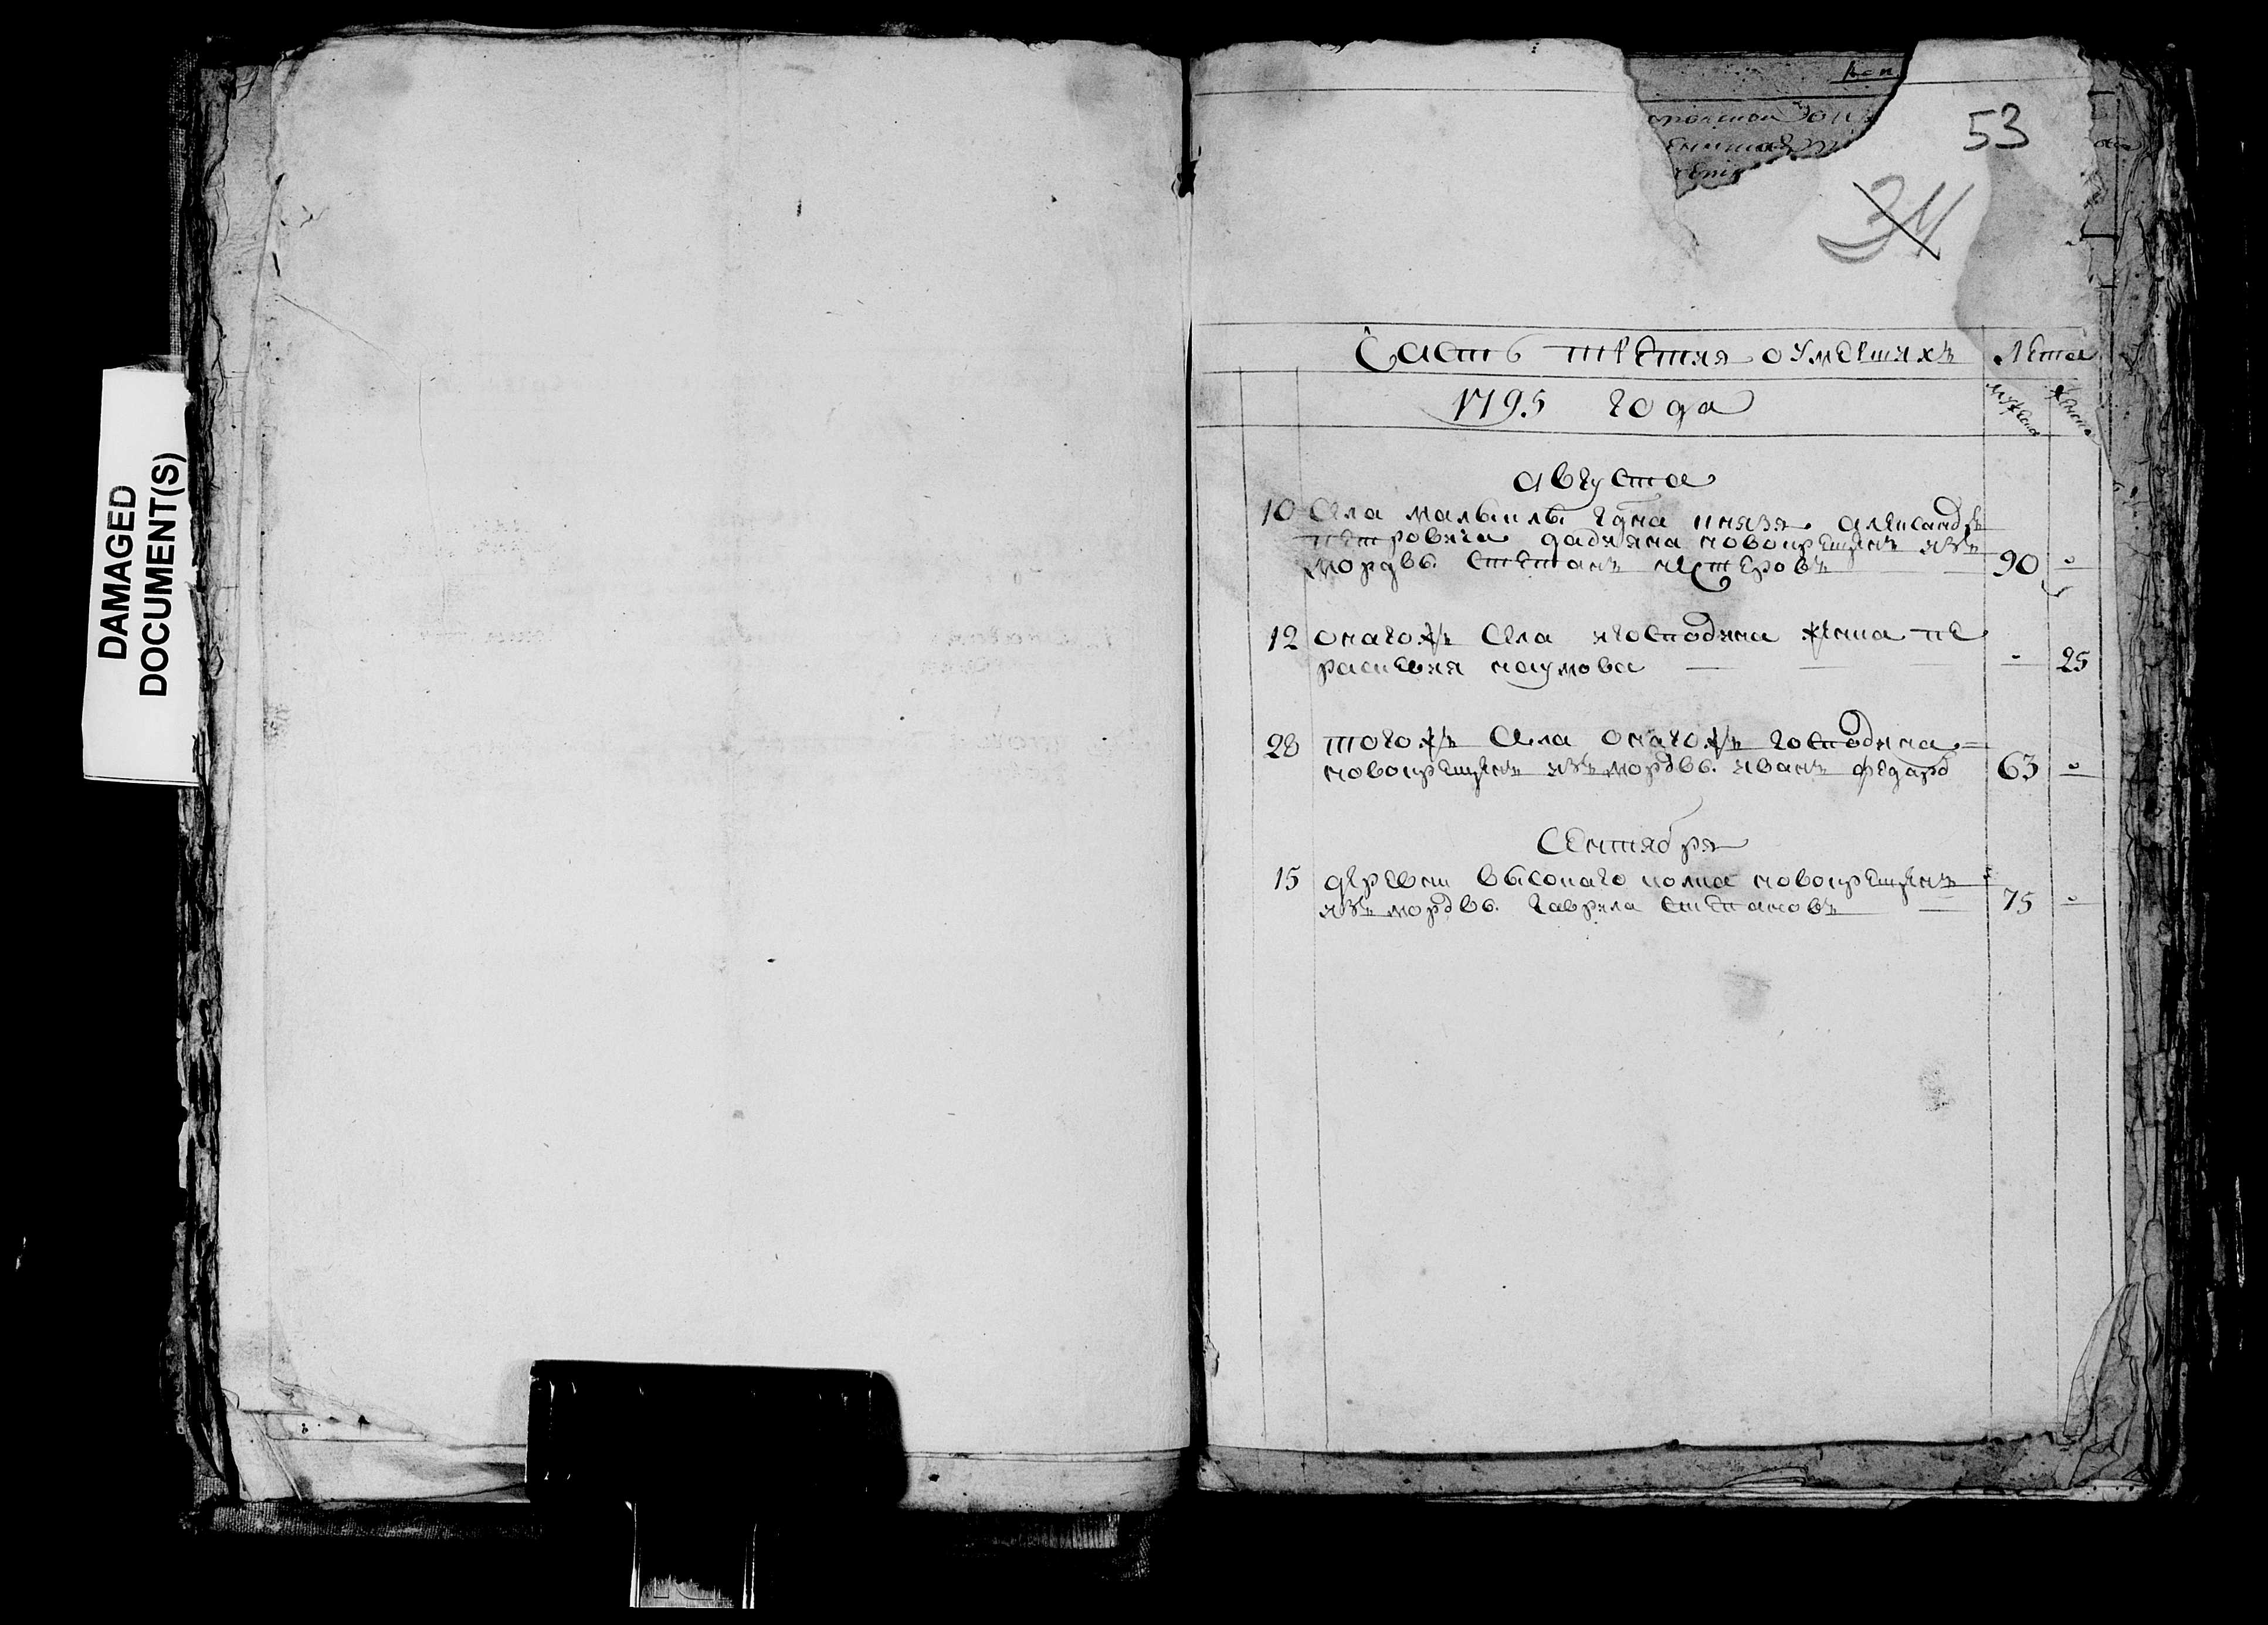 DAMAGED
DOCUMENT(S)
53
34
Часть третия о умерших Лета
1795 года
мужеска женска
августа
10 села малыилы гдна князя александр
петровича дадиана новокрещен из
мордвы степан нестеров 90
12 онагож села и господина жена пе
расковия наумова 25
28 тогож села онагож господина
новокрещен из мордвы иван федаро 63
сентября
15 деревни высокаго колка новокрещен
из мордвы гаврила степанов 75